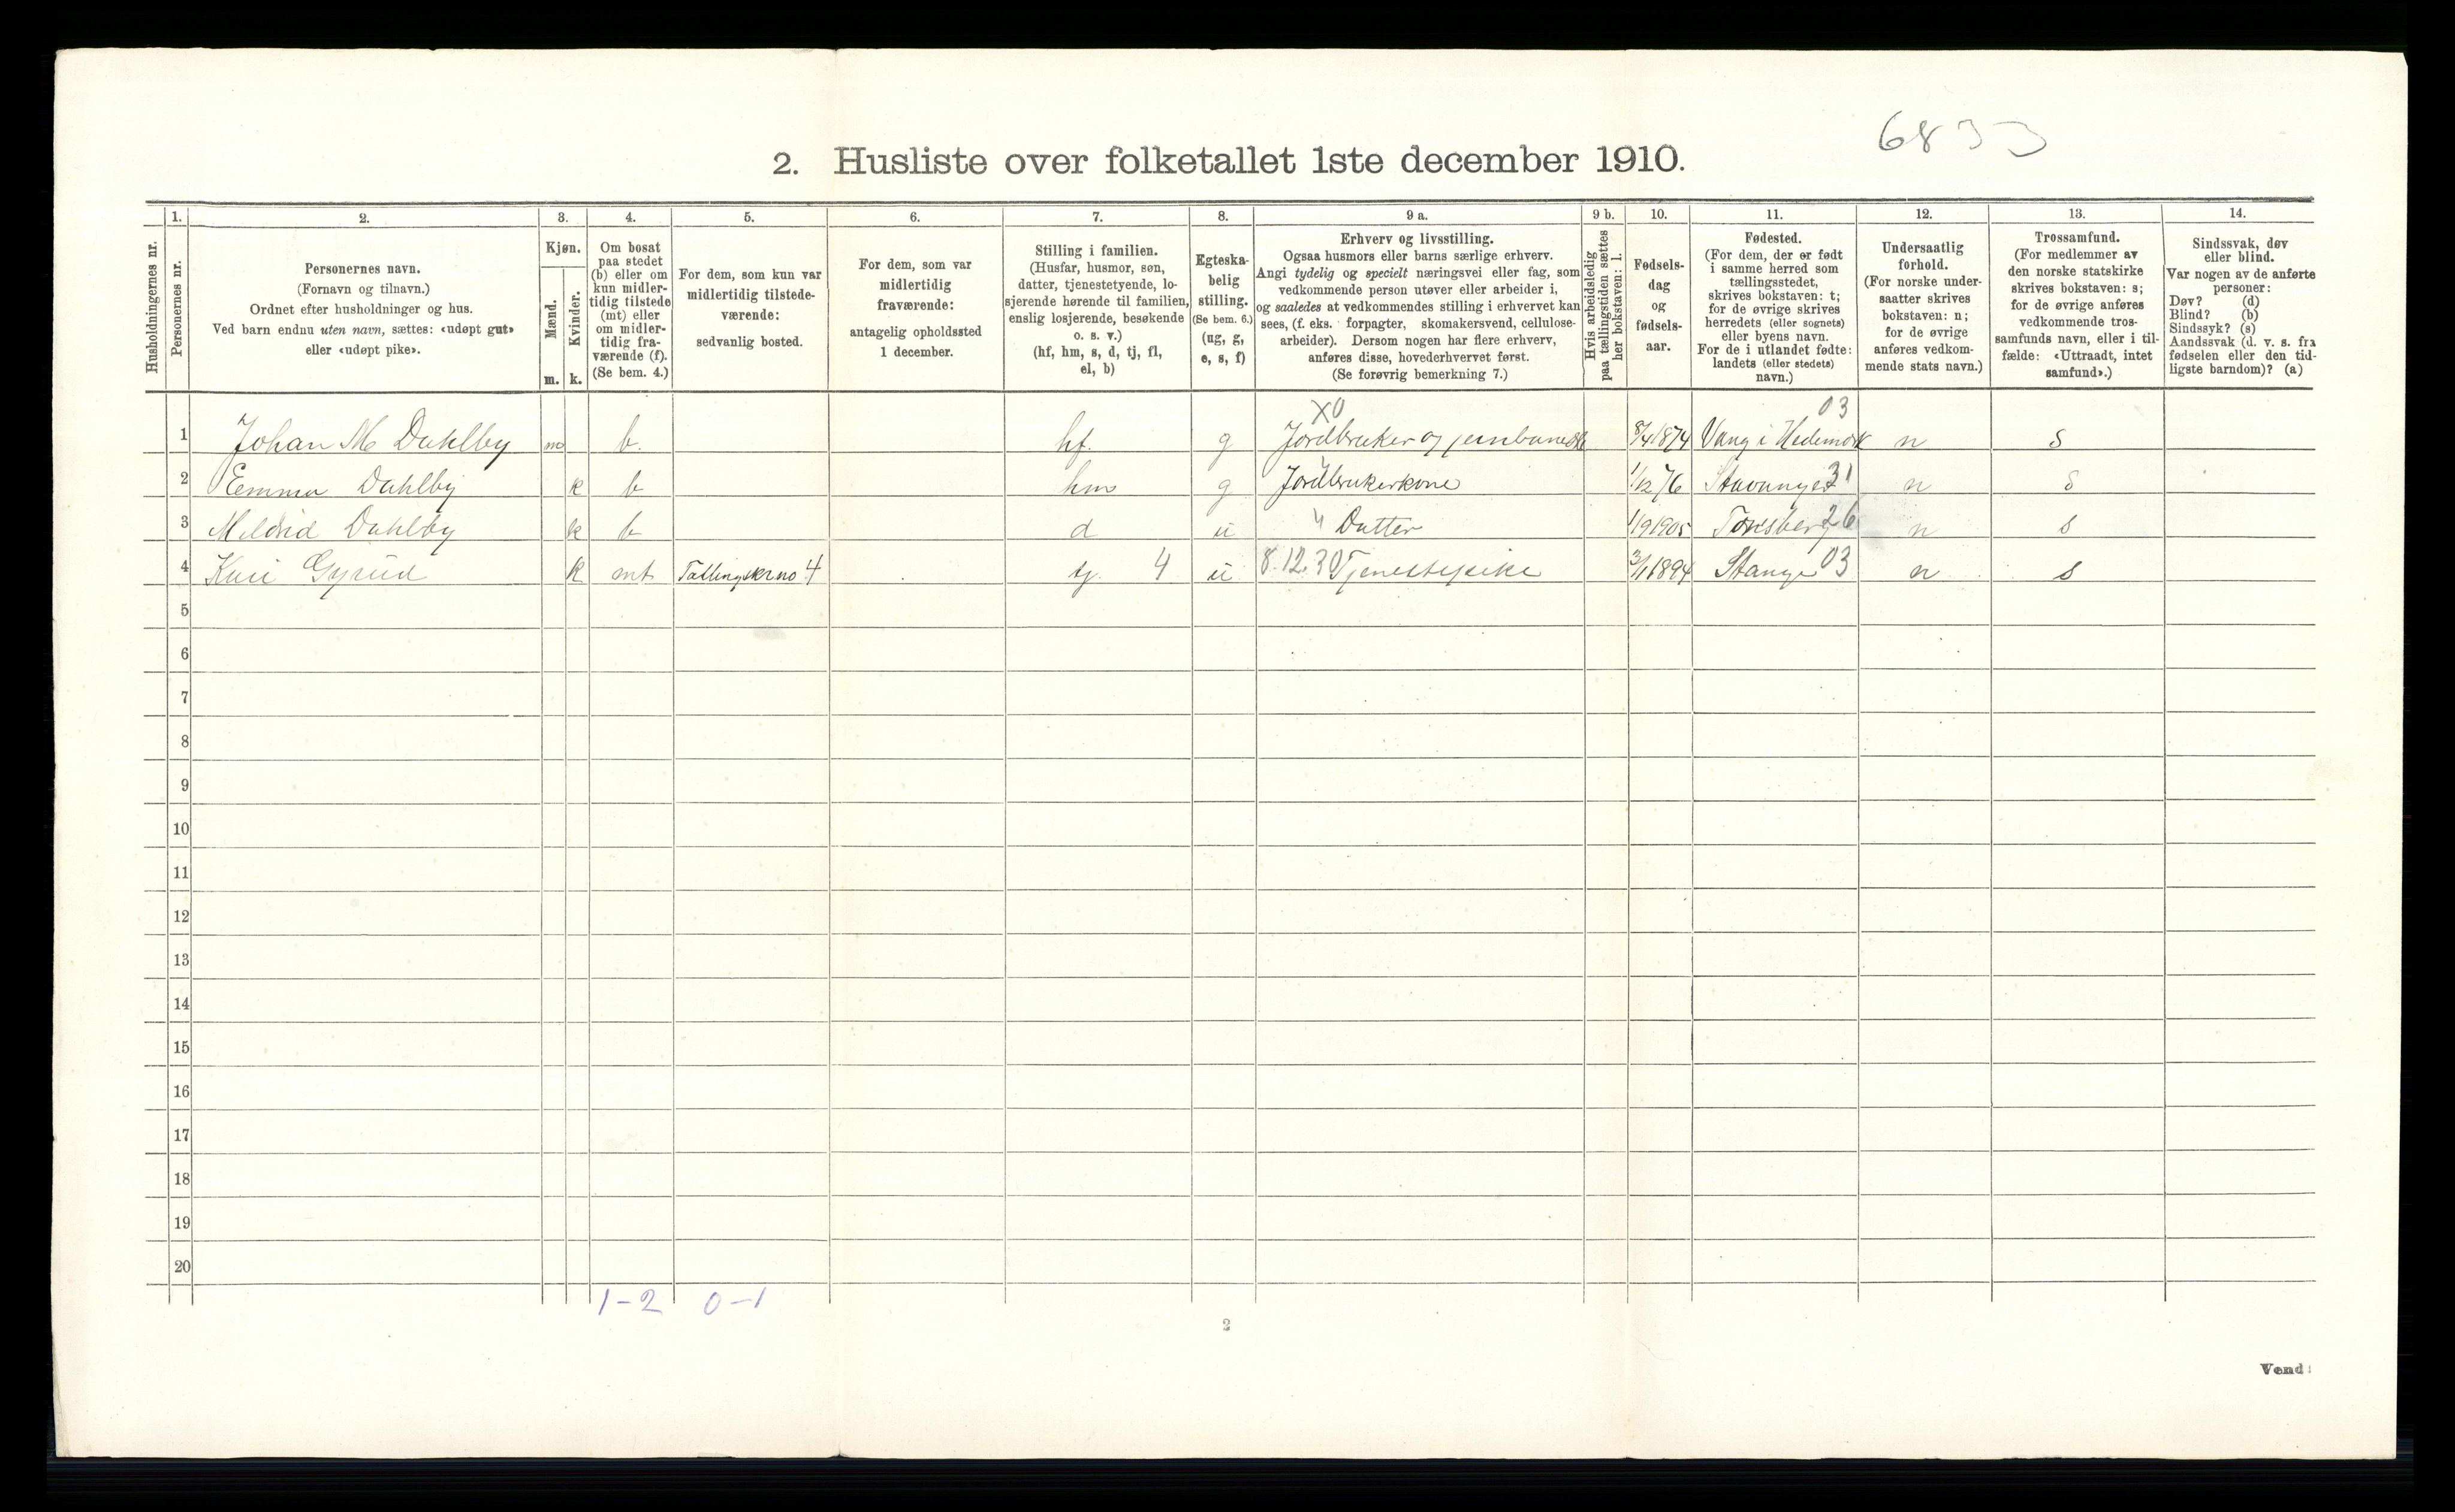 6833
2. Husliste over folketallet 1ste december 1910.
Husholdningernes nr.
1.
Personernes nr.
2.
Personernes navn.
(Fornavn og tilnavn.)
Ordnet efter husholdninger og hus.
Ved barn endnu uten navn, sættes: «udøpt gut»
eller «udøpt pike».
3.
Kjøn.
Mænd.
Kvinder.
m. k.
4.
Om bosat
paa stedet
(b) eller om
kun midler-
tidig tilstede
(mt) eller
om midler-
tidig fra-
værende (f).
(Se bem. 4.)
5.
For dem, som kun var
midlertidig tilstede-
værende:
sedvanlig bosted.
6.
For dem, som var
midlertidig
fraværende:
antagelig opholdssted
1 december.
7.
Stilling i familien.
(Husfar, husmor, søn,
datter, tjenestetyende, lo-
sjerende hørende til familien,
enslig losjerende, besøkende
o. s. v.)
(hf, hm, s, d, tj, fl,
el, b)
8.
Egteska-
belig
stilling.
(Se bem. 6.)
(ug, g,
e, s, f)
9 a.
Erhverv og livsstilling.
Ogsaa husmors eller barns særlige erhverv.
Angi tydelig og specielt næringsvei eller fag, som
vedkommende person utøver eller arbeider i,
og saaledes at vedkommendes stilling i erhvervet kan
sees, (f. eks. forpagter, skomakersvend, cellulose-
arbeider). Dersom nogen har flere erhverv,
anføres disse, hovederhvervet først.
(Se forøvrig bemerkning 7.)
9 b.
Hvis arbeidsledig
paa tællingstiden sættes
her bokstaven: l.
10.
Fødsels-
dag
og
fødsels-
aar.
11.
Fødested.
(For dem, der er født
i samme herred som
tællingsstedet,
skrives bokstaven: t;
for de øvrige skrives
herredets (eller sognets)
eller byens navn.
For de i utlandet fødte:
landets (eller stedets)
navn.)
12.
Undersaatlig
forhold.
(For norske under-
saatter skrives
bokstaven: n;
for de øvrige
anføres vedkom-
mende stats navn.)
13.
Trossamfund.
(For medlemmer av
den norske statskirke
skrives bokstaven: s;
for de øvrige anføres
vedkommende tros-
samfunds navn, eller i til-
fælde: «Uttraadt, intet
samfund».)
14.
Sindssvak, døv
eller blind.
Var nogen av de anførte
personer:
Døv? (d)
Blind? (b)
Sindssyk? (s)
Aandssvak (d. v. s. fra
fødselen eller den tid-
ligste barndom)? (a)
X0 03
1 Johan M Dahlby m b. hf. g Jordbruker og 8/4 1874 Vang i Hedemark n s
2 Emma Dahlby k b hm g Jordbrukerkone 1/12 76 Stavanger 31 n s
3 Dahlby k b d u " Datter 1/9 1905 Tønsberg 26 n s
4 k mt 4 tj. 4 u 8.12.30 Tjenestepike 3/1 1894 Stange 03 n s
5
6
7
8
9
10
11
12
13
14
15
16
17
18
19
20
1-2 0-1
2
Vend!